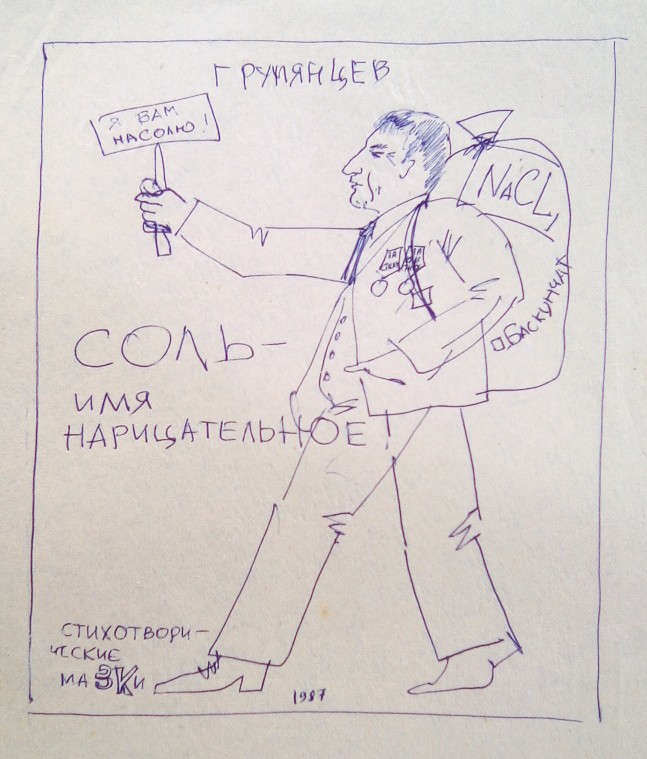 Г РУМЯНЦЕВ
Я ВАМ
НАСОЛЮ!
NaCL
О.БАСКУНЧАК
СОЛЬ-
ИМЯ
НАРИЦАТЕЛЬНОЕ!
СТИХОТВОРИ-
ЧЕСКИЕ
МАЗКИ
1987